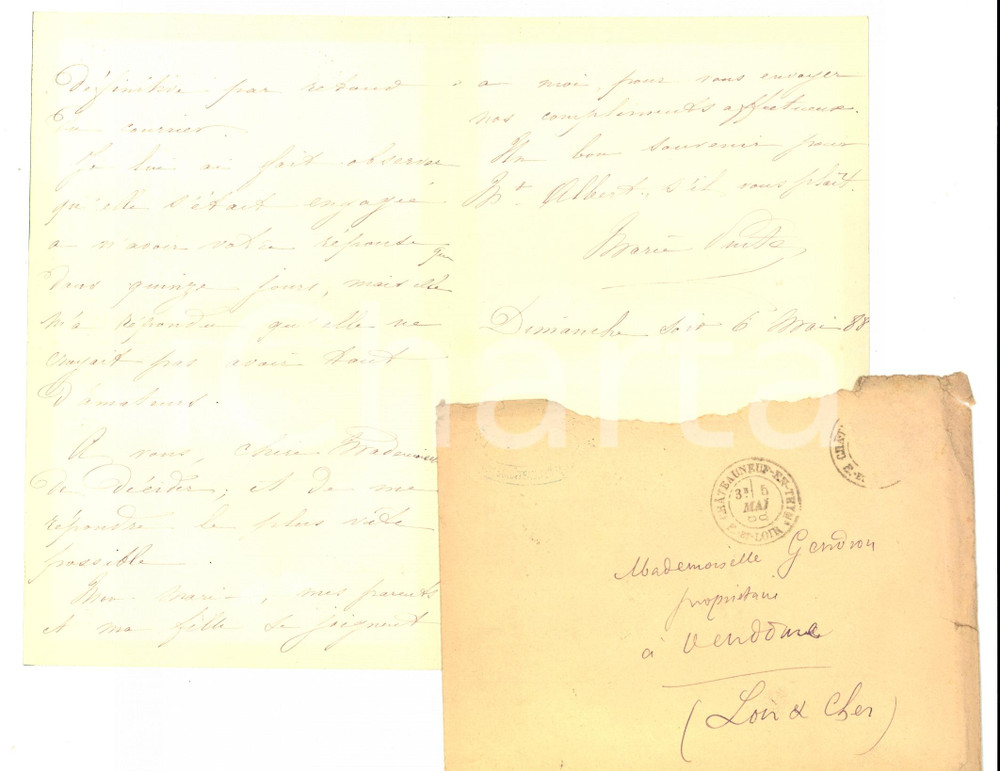 Définitive par retour
du courrier.
Je lui ai fait observer
qu'elle s'était engagée
a n'avoir votre réponse que
dans quinze jours, mais elle
m'a répondu qu'elle ne
croyait pas avoir tant
d'amateurs.
A vous, chère Mademoiselle
de décider, et de me
répondre le plus vite
possible.
Mon mari, mes parents
et ma fille se joignent
a moi, pour vous envoyer
nos compliments affectueux.
Un bon souvenir pour
Mr Albert, s'il vous plait.
Marie
Dimanche soir 6 Mai 88
Charta
CHÂTEAUNEUF-EN-THYMs
3E
MAI
88
E.-ET-LOIR
CHÂT
E.-E
Mademoiselle Gendron
propriétaire
à Vendôme
(Loir & Cher)